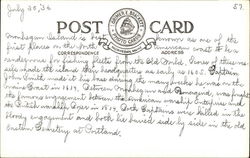 July 20, 36
57
POST CARD
CORRESPONDENCE
ADDRESS
Monhegan Island is best known as one of the
first places on the North American coast to be a
rendezvous for fishing fleets from the Old World. Some of these
made the island their headquarters as early as 1605. Captain
John Smith made it his base during the many weeks he was on the
Maine Coast in 1614. Between Monhegan and Pemaquid, was fought
the famous engagement between the American warship Enterprise and
the British warship Boxer in 1813. Both Captains were killed in the
bloody engagement and both lie buried side by side in the old
Eastern Cemetery at Portland.